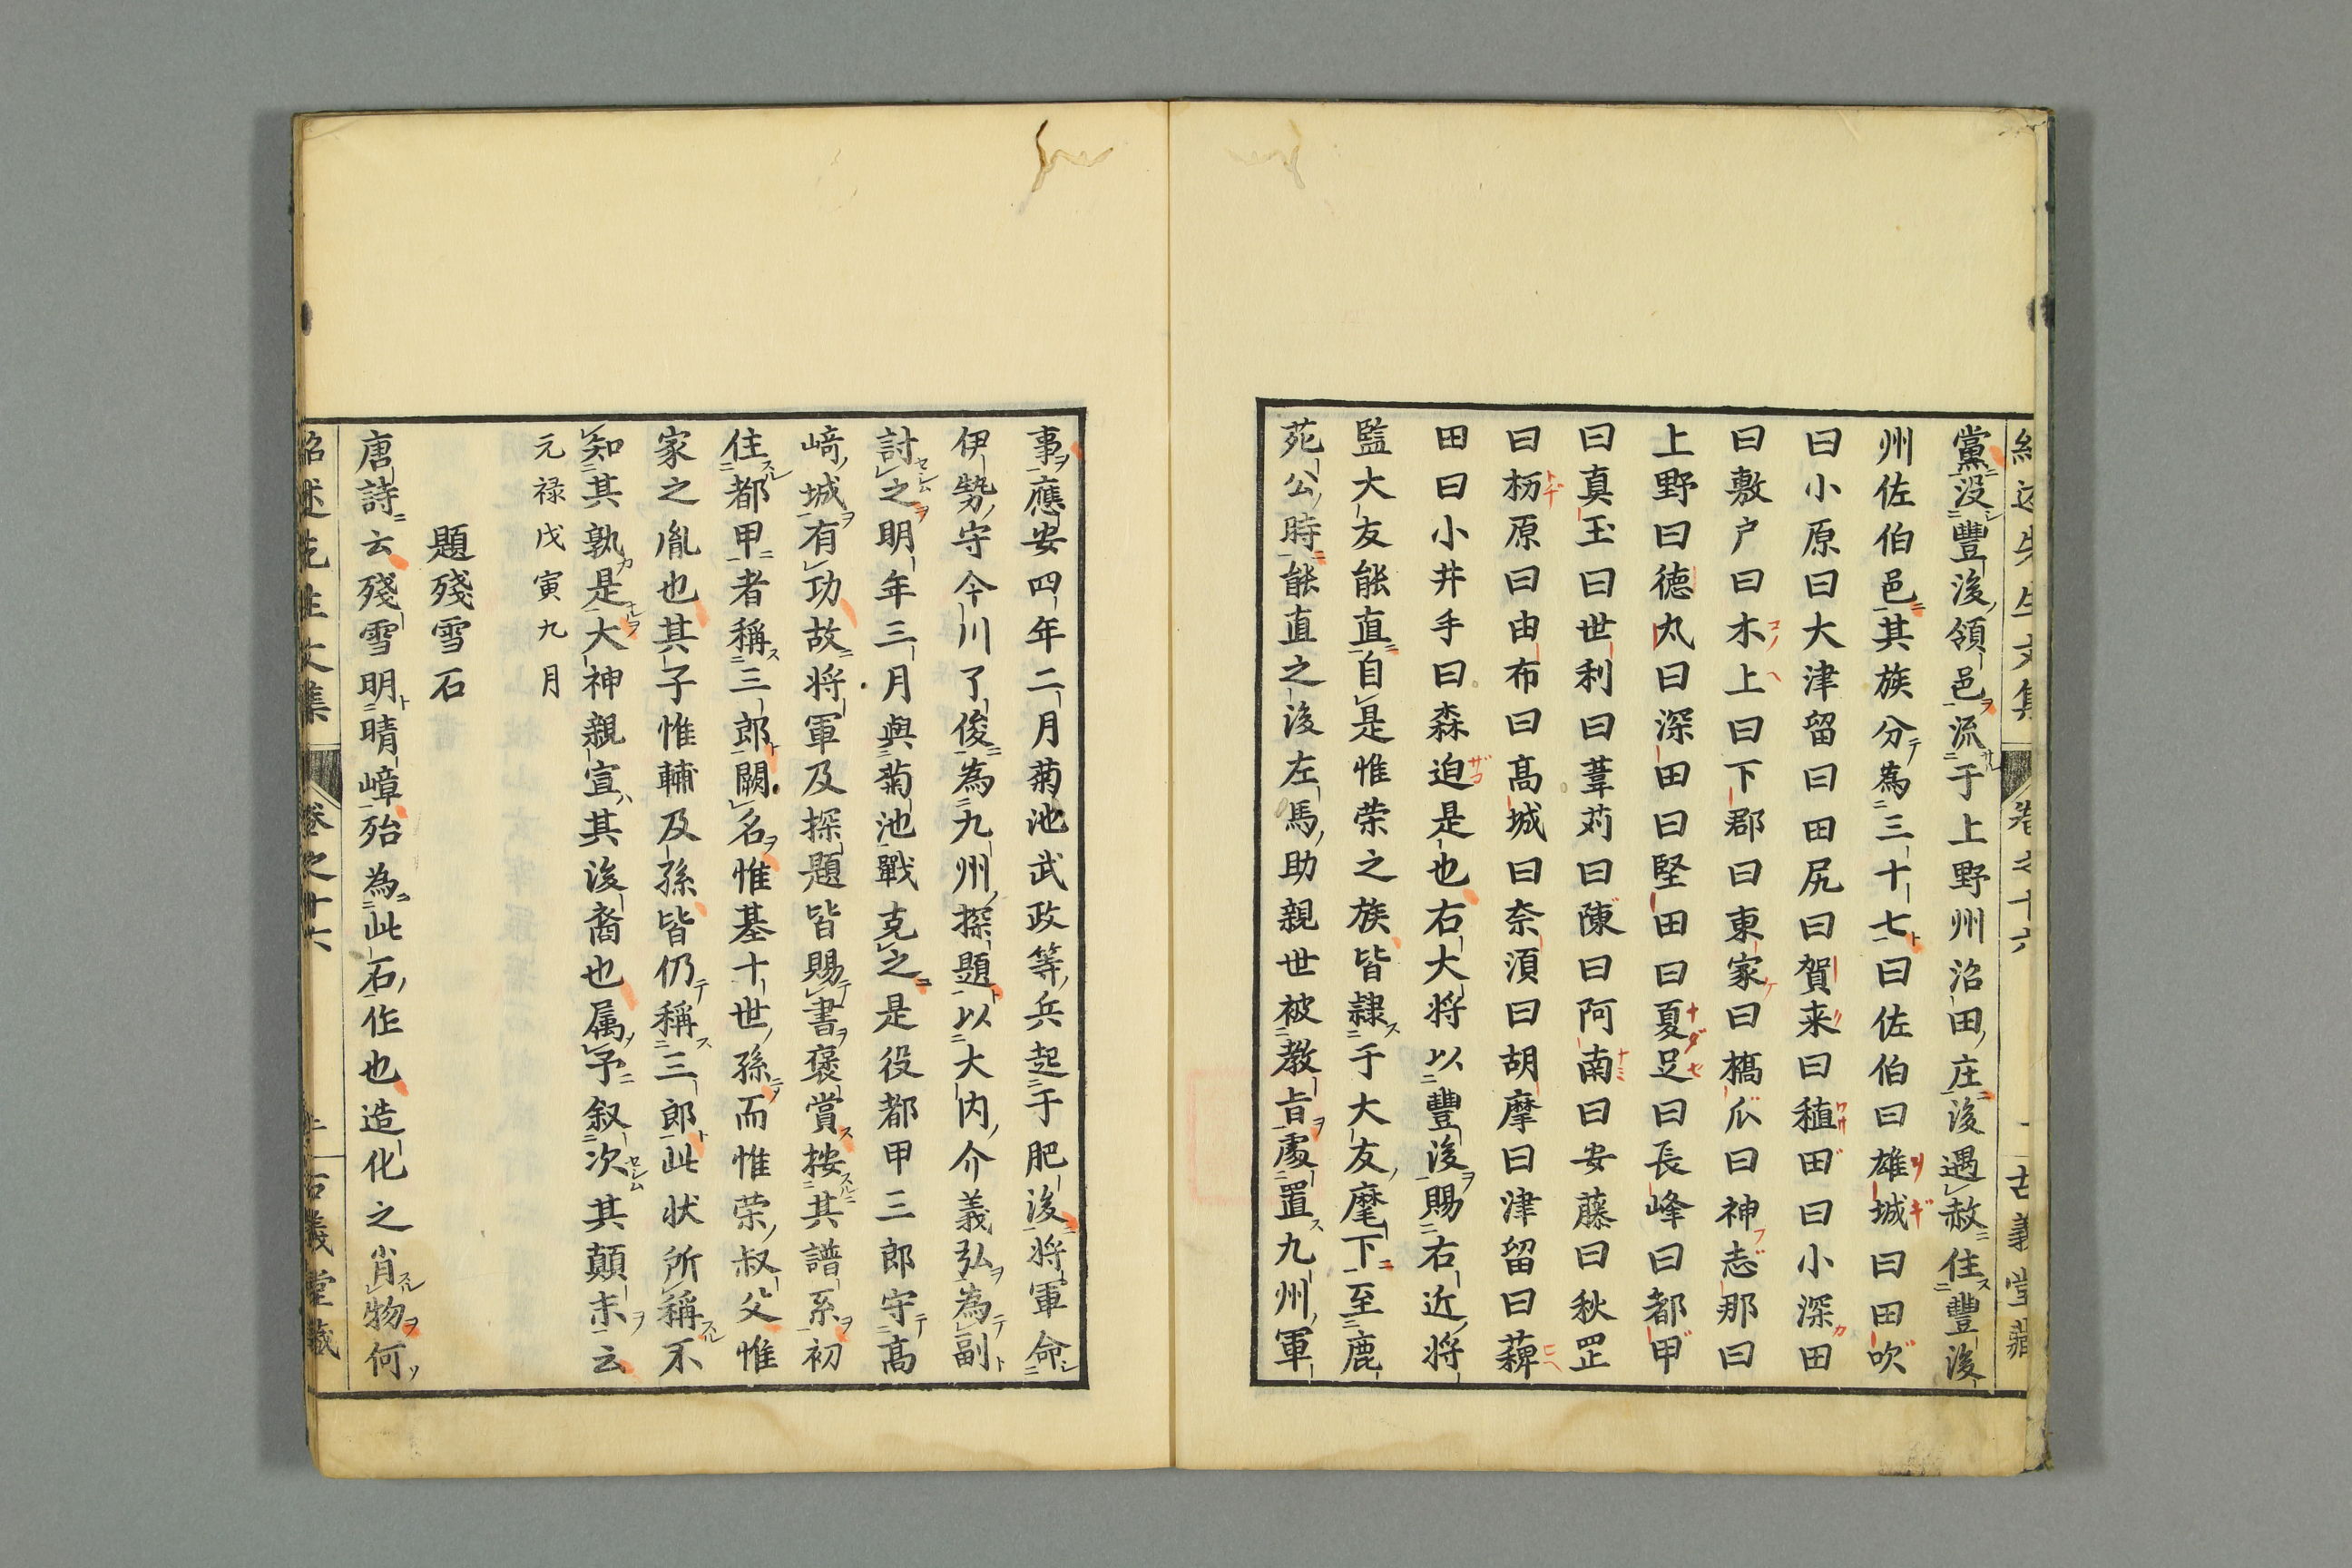 紹述先生文集 卷之十六 古義堂藏
黨没豐後領邑流于上野州沼田庄後遇赦住豐後
州佐伯邑其族分為三十七曰佐伯曰雄城曰田吹
曰小原曰大津留曰田尻曰賀来曰稙田曰小深田
曰敷户曰木上曰下郡曰東家曰槗爪曰神志那曰
上野曰德丸曰深田曰堅田曰夏足曰長峰曰都甲
曰真玉曰世利曰葦苅曰陳曰阿南曰安藤曰秋罡
曰杤原曰由布曰髙城曰奈湏曰胡摩曰津留曰薭
田曰小井手曰森迫是也右大将以豐後賜右近将
監大友能直自是惟荣之族皆隷于大友麾下至鹿
苑公時能直之後左馬助親世被教旨處置九州軍
事應安四年二月菊池武政等兵起于肥後将軍命
伊勢守今川了俊為九州探題以大内介義弘為副
討之明年三月與菊池戰克之是役都甲三郎守髙
﨑城有功故将軍及探題皆賜書褒賞按其譜系初
住都甲者稱三郎闕名惟基十世孫而惟荣叔父惟
家之胤也其子惟輔及孫皆仍稱三郎此状所稱不
知其孰是大神親宣其後裔也属予叙次其顛末云
元禄戊寅九月
題殘雪石
唐詩云殘雪明晴嶂殆為此石作也造化之肖物何
紹述先生文集 卷之十六 古義堂藏